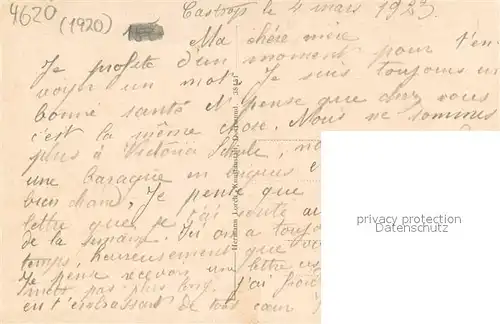 4620
(1920)
Castrop le 4 mars 1923.
Ma chère mère
Je profite d'un moment pour t'en
voyer un mot. Je suis toujours en
bonne santé et pense que chez vous
c'est la même chose. Nous ne sommes
plus à Victoria
une baraque en
bien chaud, Je pense que
lettre que je t'ai
de la semaine. Ici on a toujo
temps, heureusement que
Je pense recevoir une lettre ces
mot pas plus long. j'ai froid
en t'embrassant de tout cœur
Hermann Lorch, Kunstanstalt, Dortmund.
privacy protection
Datenschutz